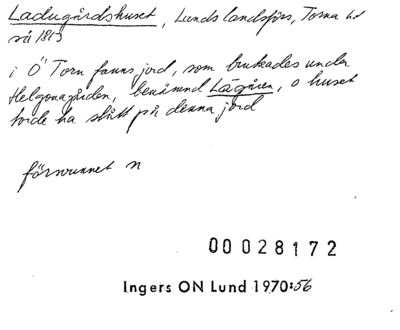 Ladugårdshuset, Lunds landsförs, Torna hd
så 1813
i Ö Torn fanns jord, som brukades under
Helgonagården, benämnd Lägåren, o huset
torde ha stått på denna jord
försvunnet n
00028172
Ingers ON Lund 1970:56